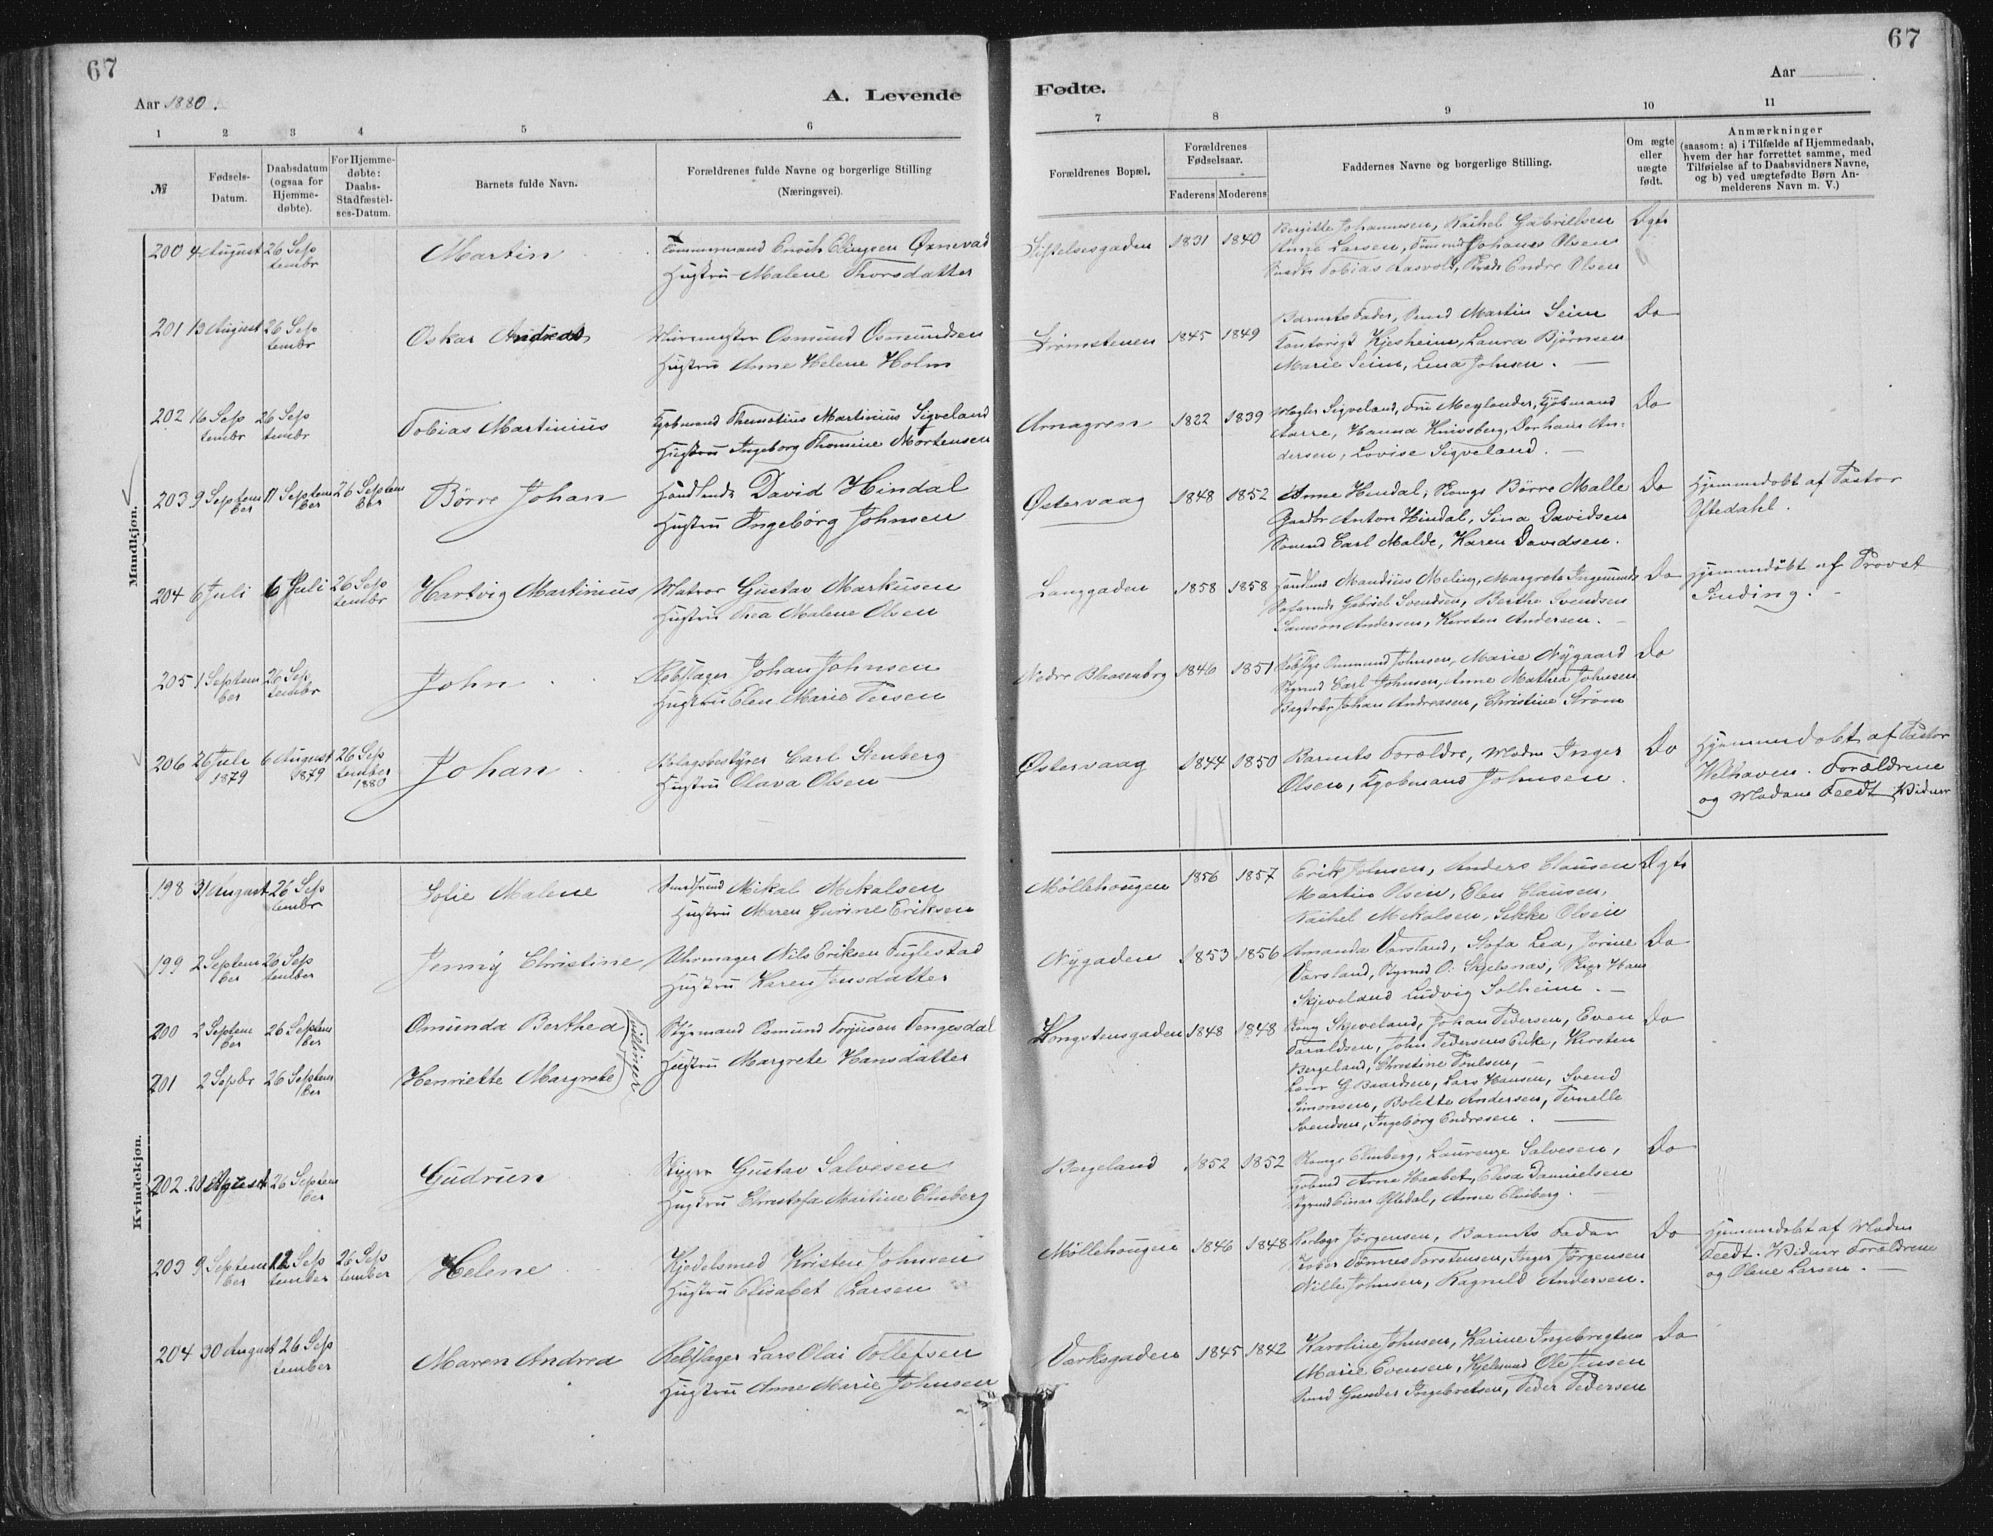 67
67
Aar 1880.
A. Levende
Fødte.
Aar
1 2 3 4 5 6
7 8 9 10 11
№
Fødsels-Datum.
Daabsdatum (ogsaa for Hjemme-døbte).
For Hjemme-døbte: Daabs-Stadfæstel-ses-Datum.
Barnets fulde Navn.
Forældrenes fulde Navne og borgerlige Stilling
(Næringsvei).
Forældrenes Bopæl.
Forældrenes Fødselsaar.
Faderens Moderens
Faddernes Navne og borgerlige Stilling.
Om ægte eller uægte født.
Anmærkninger
(saasom: a) i Tilfælde af Hjemmedaab,
hvem der har forrettet samme, med
Tilføielse af to Daabsvidners Navne,
og b) ved uægtefødte Børn An-
melderens Navn m. V.)
Mandkjøn.
200 4 August 26 September Martin
Enoch Elingsen Øxnevad
Hustru Malene Thorsdatter
1831 1840
Bergitte Johannesen, Rakel Gabrielsen
Anne Larsen, Johanes Olsen
Tobias Aasvold, Endre Olsen
Ægte
201 13 August 26 September Oskar Andreas
Osmund Osmundsen
Hustru Anne Helene Holm
Strømstenen 1845 1849
Barnets Fader, Martin Seim
Kjesheim, Laura Bjørnsen
Marie Seim, Lina Johnsen.
Do
202 16 September 26 September Tobias Martinius
Kjøbmand Martinius Sigveland
Hustru Ingeborg Thomine Mortensen
Arnagren 1822 1839
Mægler Sigveland, Fru Meylander, Kjøbmand
Aarre, Hanna Knivsberg, An-
dersen, Lovise Sigveland.
Do
203 9 September 11 September 26 September Børre Johan
Handlende David Hindal
Hustru Ingebörg Johnsen
Østervaag 1848 1852
Anne Hindal, Børre Malle
Anton Hindal, Sina Davidsen
Carl Malde, Karen Davidsen.
Do
Hjemmedøbt af Pastor
Oftedahl.
204 6 Juli 6 Juli 26 September Hartvig Martinius
Matros Gustav Markusen
Hustru Thea Malene Olsen
Langgaden 1858 1858
Meling, Margrete
Gabriel Svendsen, Berthe Svendsen
Samson Andersen, Kirsten Andersen.
Do
Hjemmedöbt af Provst
Sinding.
205 1 September 26 September John
Rebslager Johan Johnsen
Hustru Elen Marie Tersen
Nedre Blaasenborg 1846 1851
Johnsen, Marie Nygaard
Carl Johnsen, Anne Mathea Johnsen
Johan Andreasen, Christine Strøm
Do
206 26 Juli 1879 6 August 1879 26 September 1880 Johan
Bolagsbestyrer Carl Stenberg
Hustru Olava Olsen
Østervaag 1844 1850
Barnets Forældre, Inger
Olsen, Kjøbmand Johnsen.
Do
Hjemmedøbt af Pastor
Welhaven. Forældrene
og Madam Feedt Vidner
Kvindekjøn.
198 31 August 26 September Sofie Malene
Mikal Mikalsen
Hustru Maren Gurine Eriksen
Møllehougen 1856 1857
Erik Johnsen, Anders Clausen
Martin Olsen, Elen Clausen,
Rakel Mikalsen, Sikke Olsen
Ægte
199 2 September 26 September Jenny Christine
Uhrmager Nils Eriksen Fuglestad
Hustru Karen Jensdatter
Nygaden 1853 1856
Amanda Varsland, Lea, Jorine
Varsland, O. Skjelsnas, Hans
Skjeveland Ludvig Solheim.
Do
200 2 September 26 September Omunda Berthea
201 2 Septbr 26 September Henriette Margrete
Tvillinger
Styrmand Osmund Torjusen Tengesdal
Hustru Margrete Hansdatter
Kongstensgaden 1848 1848
Skjeveland, Johan Pedersen, Even
Taraldsen, John Pedersens Enke, Kirsten
Bergeland, Christine Poulsen,
Lærer G Baardsen, Lars Hansen, Svend
Simonsen, Bolette Andersen, Pernelle
Svendsen, Ingeborg Endresen.
Do
202 August 26 September Gudrun
Skipper Gustav Salvesen
Hustru Christofa Martine Elmberg
Bergeland 1852 1852
Elmberg, Laurenze Salvesen,
Arne Haabet, Elisa Danielsen
Einar Oftedal, Anne Elmberg.
Do
203 9 September 12 September 26 September Helene
Kjedelsmed Kristen Johnsen
Hustru Elisabet Larsen
Møllehougen 1846 1848
Jørgensen, Barnets Fader
Tønnes Torstensen, Inger Jørgensen
Nille Johnsen, Ragnild Andersen.
Do
Hjemmedøbt af Madm
Feedt. Vidner Forældrene
og Olene Larsen.
204 30 August 26 September Maren Andrea
Rebslager Lars Olai Tollefsen
Hustru Anne Marie Johnsen
Værksgaden 1845 1842
Karoline Johnsen, Karine Ingebregtsen
Marie Evensen, Ole Jensen
Gunder Ingebretsen, Peder Pedersen
Do